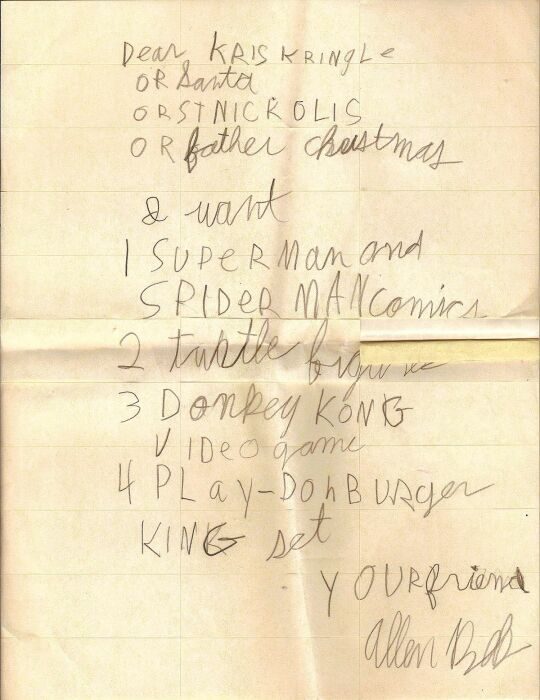 Dear KRIS KRINGLe
OR Santa
OR ST NICKOLIS
OR father christmas
I want
1 SUPeRMan and
SPIDeRMAN comics
2 turtle
3 Donkey KONG
VIDeo game
4 PLay-DohBURger
KING set
YOUR friend
Allen